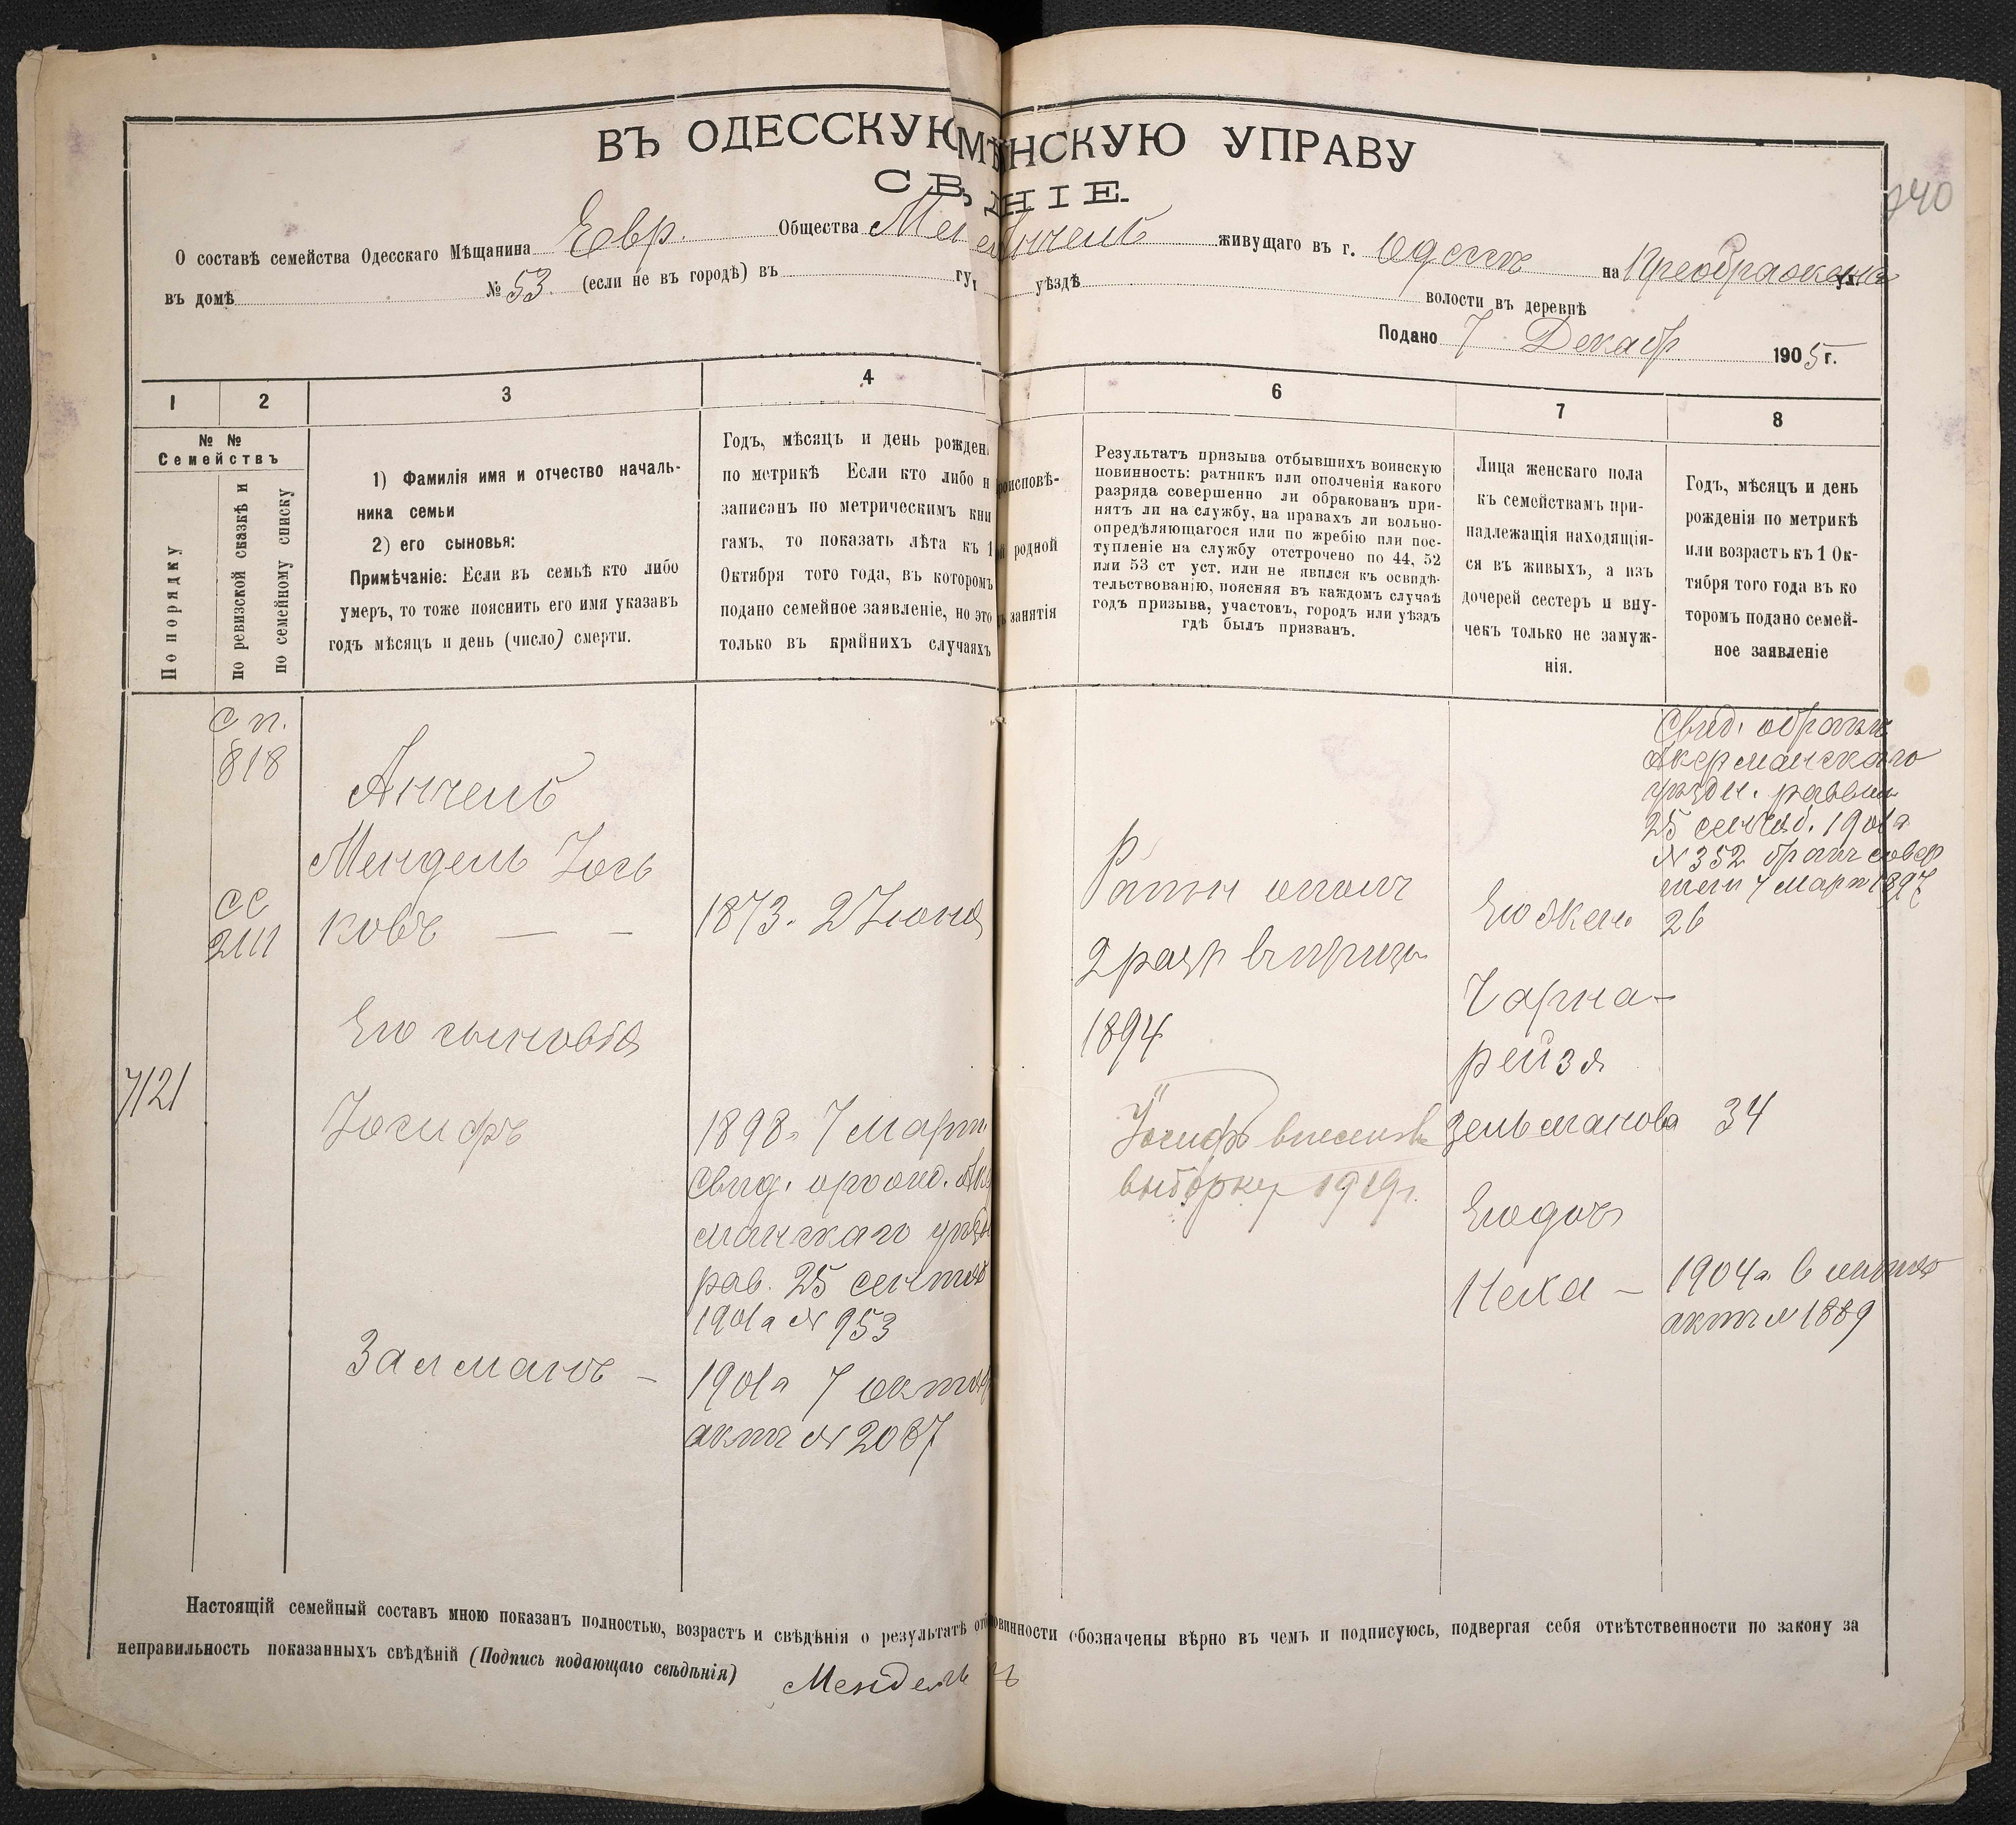 ВЪ ОДЕССКУЮ МѢ НСКУЮ УПРАВУ
СВ НІЕ.
240
О составѣ семейства Одесскаго Мѣщанина Евр. Общества Мен Анчелъ живущаго въ г. Одессѣ на Преображенс ул.
въ домѣ № 53. (если не въ городѣ) въ гу уѣздѣ волости въ деревнѣ
Подано 7 Декабр 1905 г.
1 2 3 4 6 7 8
№ №
Семействъ
По порядку
по ревизской сказкѣ и
по семейному списку
1) Фамилія имя и отчество началь-
ника семьи
2) его сыновья:
Примѣчаніе: Если въ семьѣ кто либо
умеръ, то тоже пояснить его имя указавъ
годъ мѣсяцъ и день (число) смерти.
Годъ, мѣсяцъ и день рожден
по метрикѣ Если кто либо н
записанъ по метрическимъ кни
гамъ, то показать лѣта къ 1
Октября того года, въ которомъ
подано семейное заявленіе, но это
только въ крайнихъ случаяхъ
роисповѣ-
й родной
занятія
Результатъ призыва отбывшихъ воинскую
повинность: ратникъ или ополченія какого
разряда совершенно ли обракованъ при-
нятъ ли на службу, на правахъ ли вольно-
опредѣляющагося или по жребію или пос-
тупленіе на службу отстрочено по 44, 52
или 53 ст уст. или не явился къ освидѣ-
тельствованію, поясняя въ каждомъ случаѣ
годъ призыва, участокъ, городъ или уѣздъ
гдѣ былъ призванъ.
Лица женскаго пола
къ семействамъ при-
надлежащія находящія-
ся въ живыхъ, а изъ
дочерей сестеръ и вну-
чекъ только не замуж-
нія.
Годъ, мѣсяцъ и день
рожденія по метрикѣ
или возрастъ къ 1 Ок-
тября того года въ ко
торомъ подано семей-
ное заявленіе
с п.
818
сс
2111
7121
Анчелъ
Мендель Іось
ковъ — —
Его сыновья
Іосифъ
Залманъ —
1873. 2 Іюня
1898 г 7 Март
свид. Ак
манскаго уѣзд
рав. 25 сентяб
1901 г № 953
1901 г 7 октяб
актъ № 2087
Ратн ополч
2 разр въ призы
1894
Іосифъ внесенъ въ
выборку 1919 г.
Его жен. 26
Чарна-
рейзя
Зельманова 34
Его дочь
Неха —
Свид. о брак
Акерманскаго
уѣздн. раввин
25 сентяб. 1901 г
№ 352 бракъ совер
шен 7 Март 1897
1904 г. 6 октяб
актъ № 1889
Настоящій семейный составъ мною показанъ полностью, возрастъ и свѣдѣнія о результатѣ отб овинности обозначены вѣрно въ чемъ и подписуюсь, подвергая себя отвѣтственности по закону за
неправильность показанныхъ свѣдѣній (Подпись подающаго свѣдѣнія) Мендель